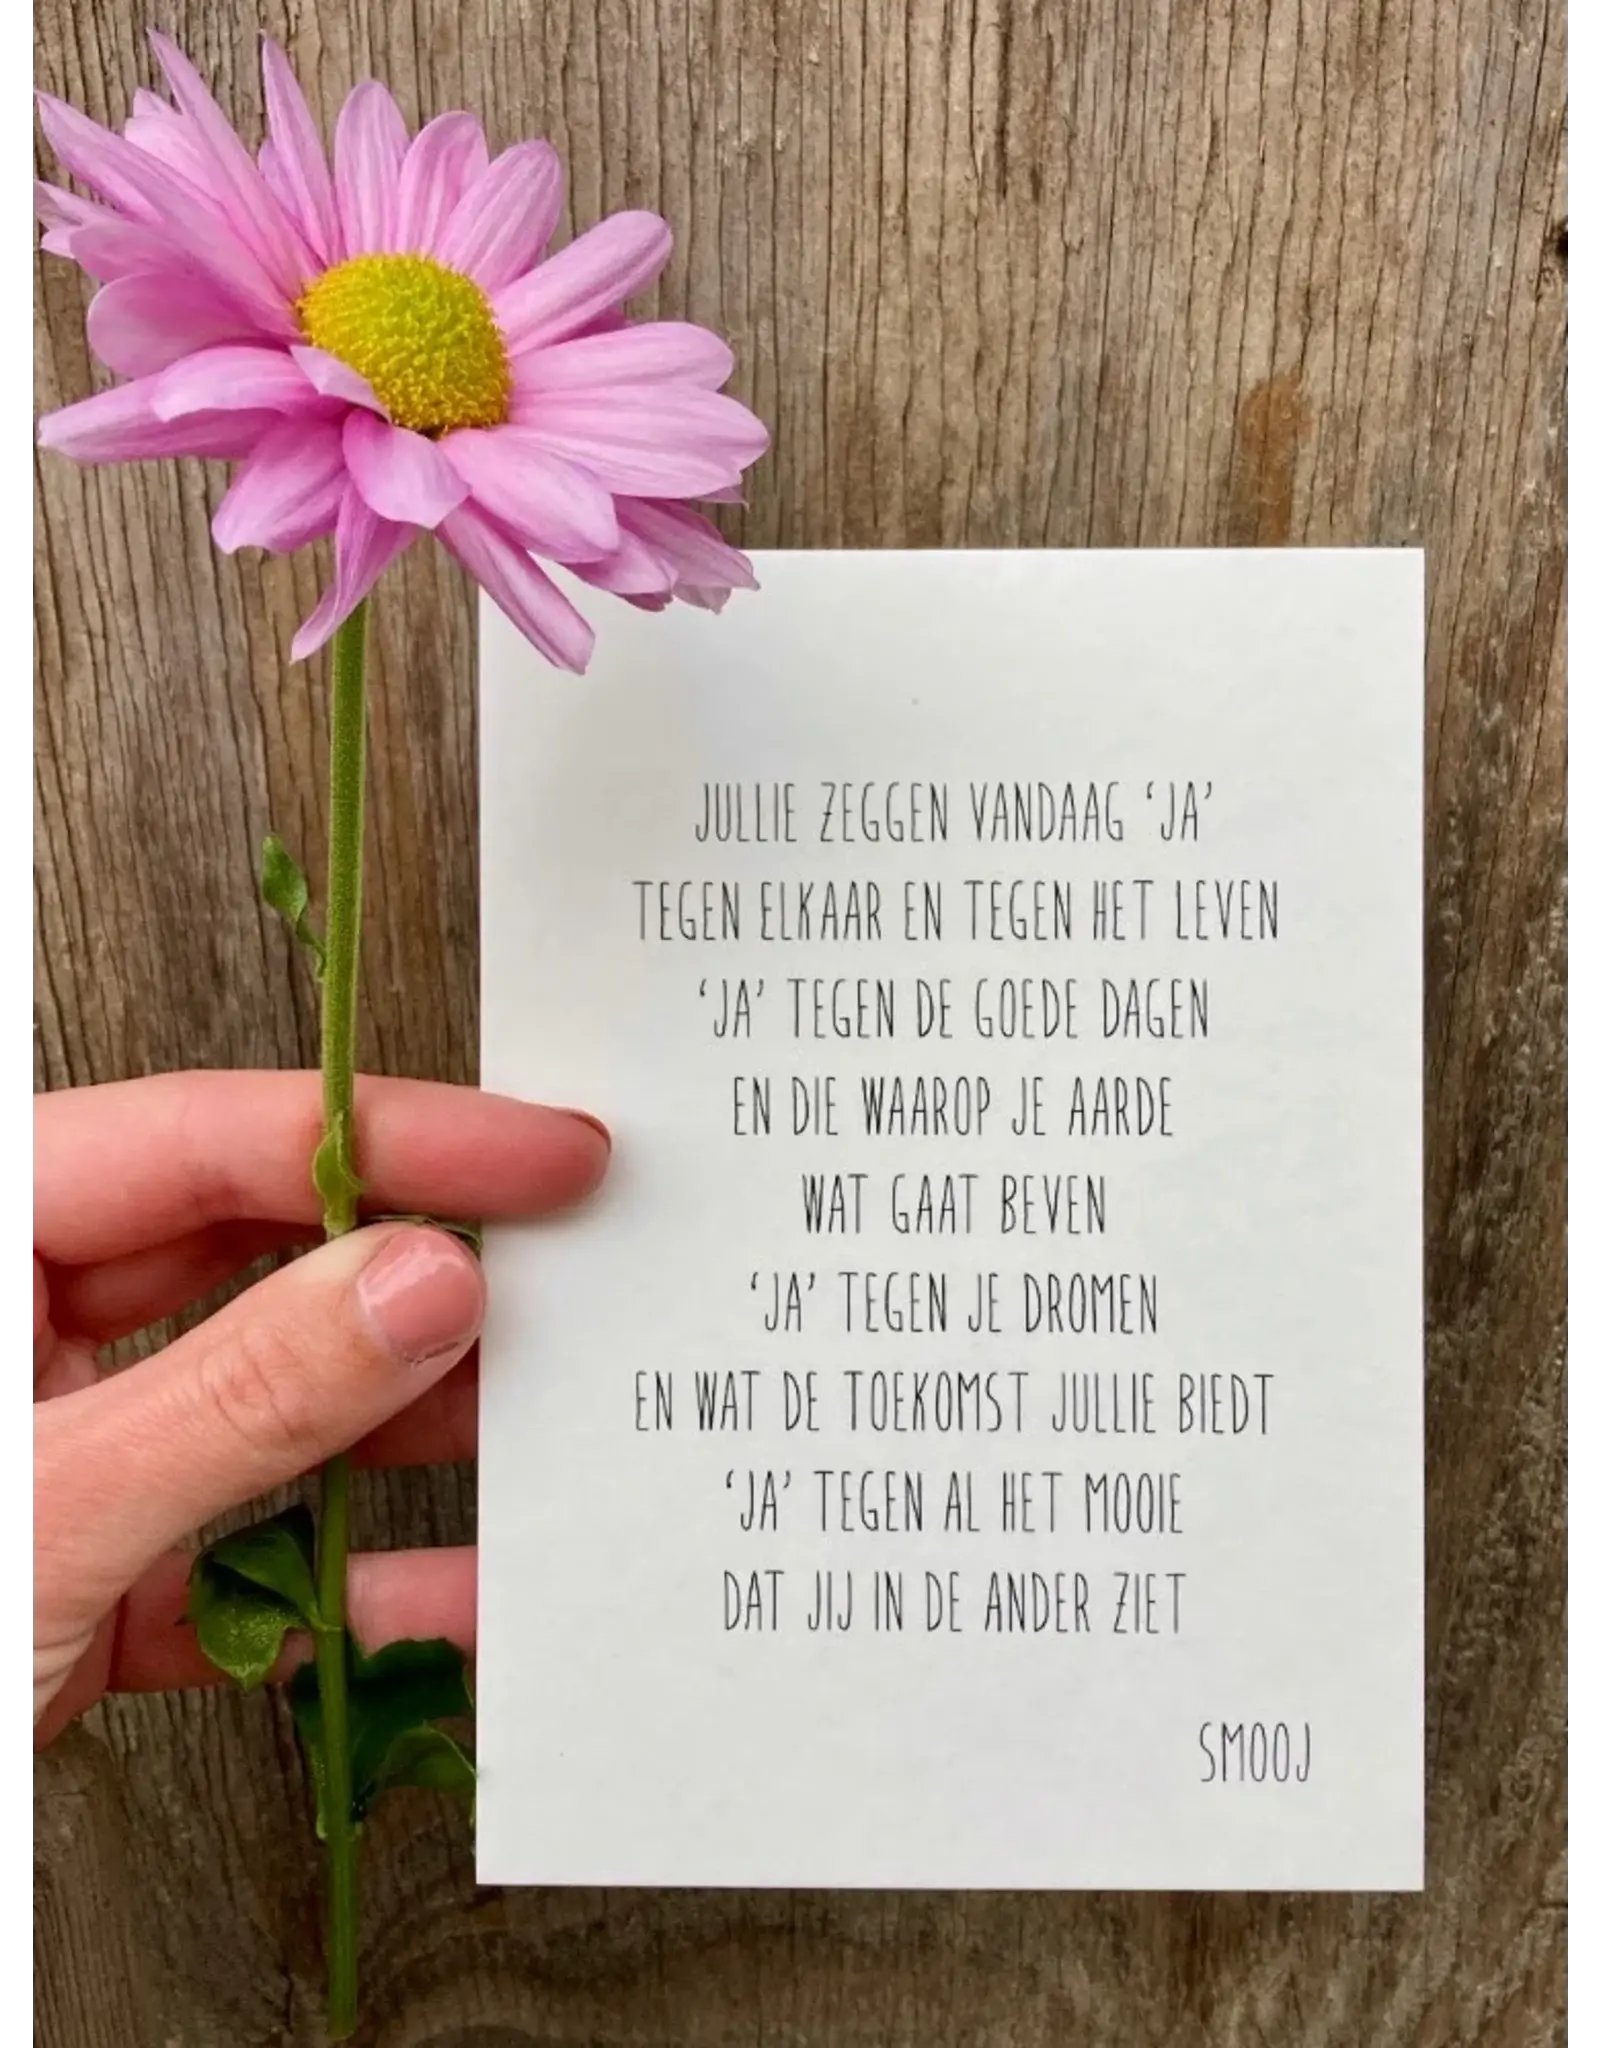 JULLIE ZEGGEN VANDAAG ‘JA’
TEGEN ELKAAR EN TEGEN HET LEVEN
‘JA’ TEGEN DE GOEDE DAGEN
EN DIE WAAROP JE AARDE
WAT GAAT BEVEN
‘JA’ TEGEN JE DROMEN
EN WAT DE TOEKOMST JULLIE BIEDT
‘JA’ TEGEN AL HET MOOIE
DAT JIJ IN DE ANDER ZIET
SMOOJ